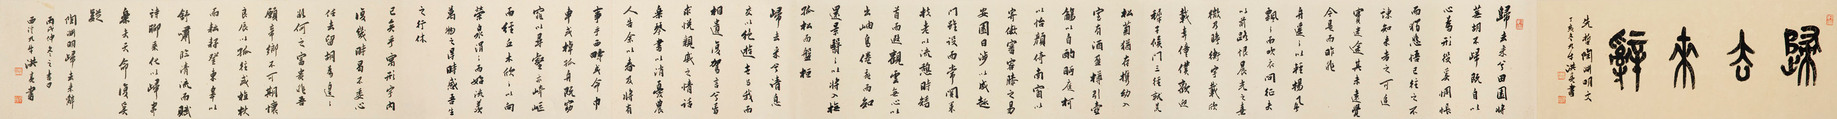 歸去來辭
先哲陶淵明文
歸去來兮田園將
蕪胡不歸既自以
心為形役奚惆悵
而獨悲悟已往之不
諫知來者之可追
實迷途其未遠覺
今是而昨非
舟遙遙以輕颺風
飄飄而吹衣問征夫
以前路恨晨光之熹
微乃瞻衡宇載欣
載奔僮僕歡迎
稚子候門三徑就荒
松菊猶存攜幼入
室有酒盈樽引壺
觴以自酌眄庭柯
以怡顏倚南窗以
寄傲審容膝之易
安園日涉以成趣
門雖設而常關策
扶老以流憩時矯
首而遐觀雲無心以
出岫鳥倦飛而知
還景翳翳以將入撫
孤松而盤桓
歸去來兮請息
交以絕遊世與我而
相遺復駕言兮焉
求悅親戚之情話
樂琴書以消憂農
人告余以春及將有
事乎西疇或命巾
車或棹孤舟既窈
窕以尋壑亦崎嶇
而經丘木欣欣以向
榮泉涓涓而始流羨
萬物之得時感吾生
之行休
已矣乎寓形宇內
復幾時曷不委心
任去留胡為遑遑
欲何之富貴非吾
願帝鄉不可期懷
良辰以孤往或植杖
而耘耔登東皋以
舒嘯臨清流而賦
詩聊乘化以歸盡
樂夫天命復奚
疑
陶淵明歸去來辭